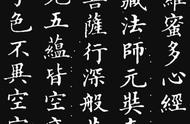 羅蜜多心經
藏法師元奘
菩薩行深般
見五蘊皆空
子色不異空